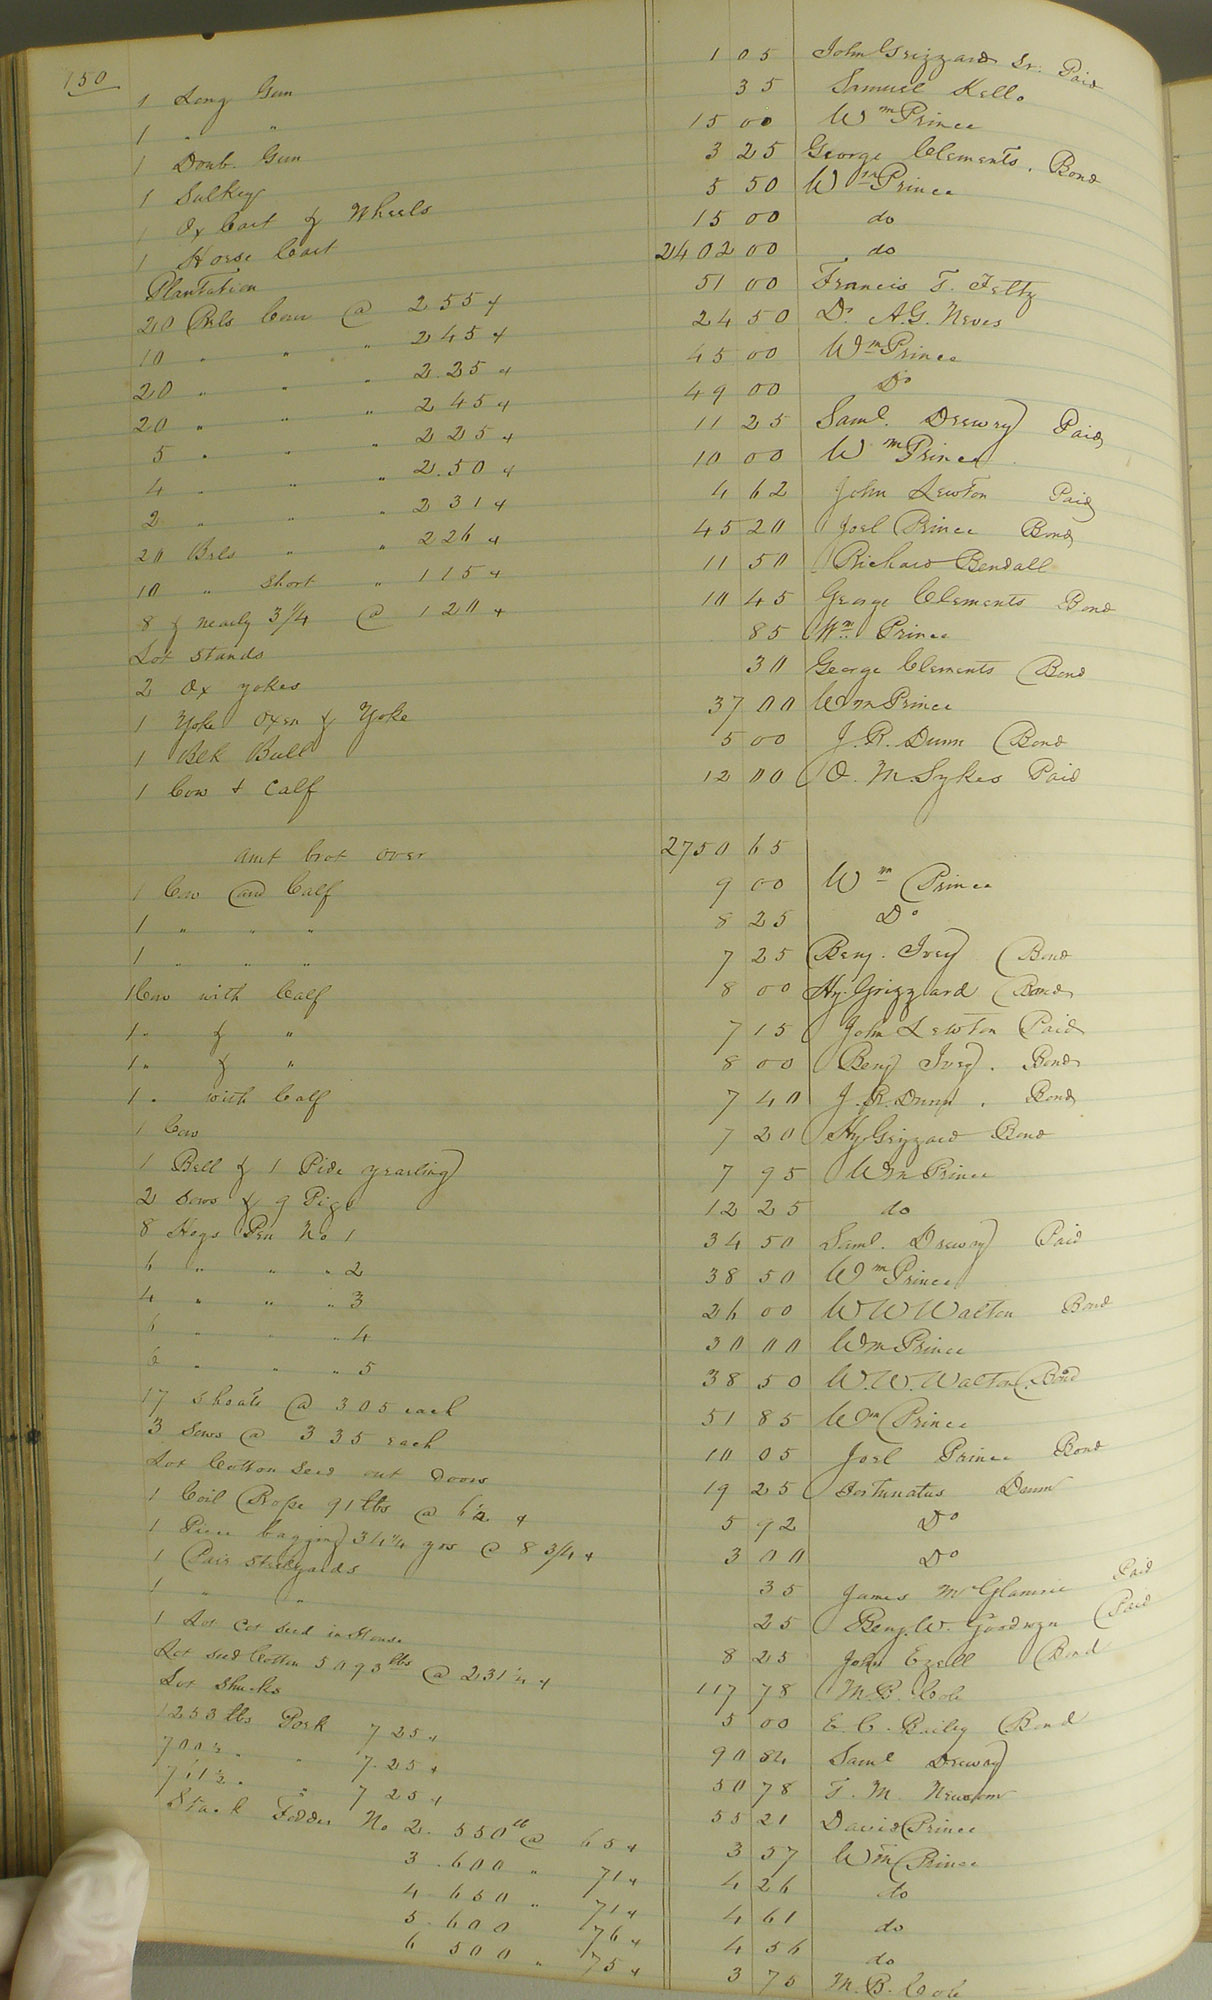 150
1 Long Gun 1 05 John Grizzard Sr. Paid
1 " " 35 Samuel Kello
1 Doub. Gun 15 00 Wm Prince
1 Sulkey 3 25 George Clements. Bond
1 Ox Cart & Wheels 5 50 Wm Prince
1 Horse Cart 15 00 do
Plantation 2402 00 do
20 Brls Corn @ 255 51 00 Francis T. Feltz
10 " " " 245 24 50 Dr. A.G. Neves
20 " " " 2.25 45 00 Wm Prince
20 " " " 245 49 00 Do
5 " " " 225 11 25 Saml. Drewry Paid
4 " " " 2.50 10 00 Wm Prince
2 " " " 231 4 62 John Newton Paid
20 Brls " " 226 45 20 Joel Prince Bond
10 " Short " 115 11 50 Richard Bendall
8 & nearly 3/4 @ 120 10 45 George Clements Bond
Lot Stands 85 Wm Prince
2 Ox yokes 30 George Clements Bond
1 Yoke Oxen & Yoke 37 00 Wm Prince
1 Blk Bull 5 00 J. R. Dunn Bond
1 Cow & Calf 12 00 O. M. Sykes Paid
amt brot over 2750 65
1 Cow and Calf 9 00 Wm Prince
1 " " " 8 25 Do
1 " " " 7 25 Benj. Ivey Bond
1 Cow with Calf 8 00 Hy. Grizzard Bond
1 " & " 7 15 John Newton Paid
1 " & " 8 00 Benj Ivey. Bond
1 " with Calf 7 40 J. R. Dunn. Bond
1 Cow 7 20 Hy Grizzard Bond
1 Bell & 1 Pide yearling 7 95 Wm Prince
2 Sows & 9 Pigs 12 25 do
8 Hogs Pen No 1 34 50 Saml. Drewry Paid
6 " " " 2 38 50 Wm Prince
4 " " " 3 26 00 W W Walton Bond
6 " " " 4 30 00 Wm Prince
6 " " " 5 38 50 W. W. Walton Bond
17 Shoats @ 305 each 51 85 Wm Prince
3 Sows @ 335 each 10 05 Joel Prince Bond
Lot Cotton Seed out doors 19 25 Fortunatus Dunn
1 Coil Rope 91 lbs @ 6½ 5 92 Do
1 Piece bagging 34¼ yds @ 8 3/4 3 00 Do
1 Pair Steelyards 35 James McGlamrie Paid
1 " " 25 Benj. W. Goodwyn Paid
1 Lot cot seed in House 8 25 John Ezell Bond
Lot seed Cotton 5093 lbs @ 231¼ 117 78 M. B. Cole
Lot Shucks 5 00 E. C. Bailey Bond
1253 lbs Pork 725 90 84 Saml Drewry
700½ " " 7.25 50 78 T. M. Newsom
711½ " " 725 55 21 David Prince
Stack Fodder No 2. 550 lb @ 65 3 57 Wm Prince
3. 600 " 71 4 26 do
4. 650 " 71 4 61 do
5. 600 76 4 56 do
6 500 " 75 3 75 M. B. Cole